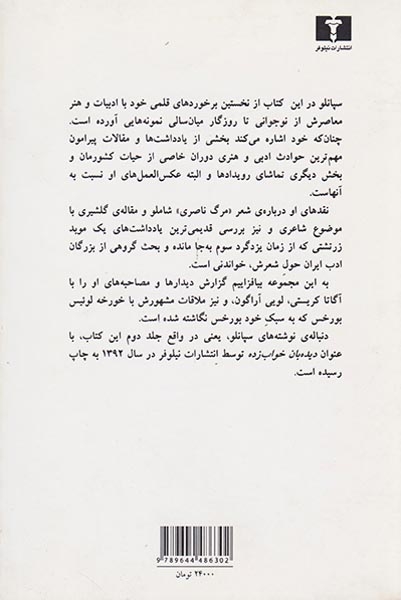 انتشارات نیلوفر
سپانلو در این کتاب از نخستین برخوردهای قلمی خود با ادبیات و هنر
معاصرش از نوجوانی تا روزگار میان‌سالی نمونه‌هایی آورده است.
چنان‌که خود اشاره می‌کند بخشی از یادداشت‌ها و مقالات پیرامون
مهم‌ترین حوادث ادبی و هنری دوران خاصی از حیات کشورمان و
بخش دیگری تماشای رویدادها و البته عکس‌العمل‌های او نسبت به
آنهاست.
نقدهای او درباره‌ی شعر «مرگ ناصری» شاملو و مقاله‌ی گلشیری با
موضوع شاعری و نیز بررسی قدیمی‌ترین یادداشت‌های یک موبد
زرتشتی که از زمان یزدگرد سوم به‌جا مانده و بحث گروهی از بزرگان
ادب ایران حول شعرش، خواندنی است.
به این مجموعه بیافزاییم گزارش دیدارها و مصاحبه‌های او را با
آگاتا کریستی، لویی آراگون، و نیز ملاقات مشهورش با خورخه لوئیس
بورخس که به سبکِ خود بورخس نگاشته شده است.
دنباله‌ی نوشته‌های سپانلو، یعنی در واقع جلد دوم این کتاب، با
عنوان دیده‌بان خواب‌زده توسط انتشارات نیلوفر در سال ۱۳۹۲ به چاپ
رسیده است.
9 789644 486302
۲۴۰۰۰ تومان